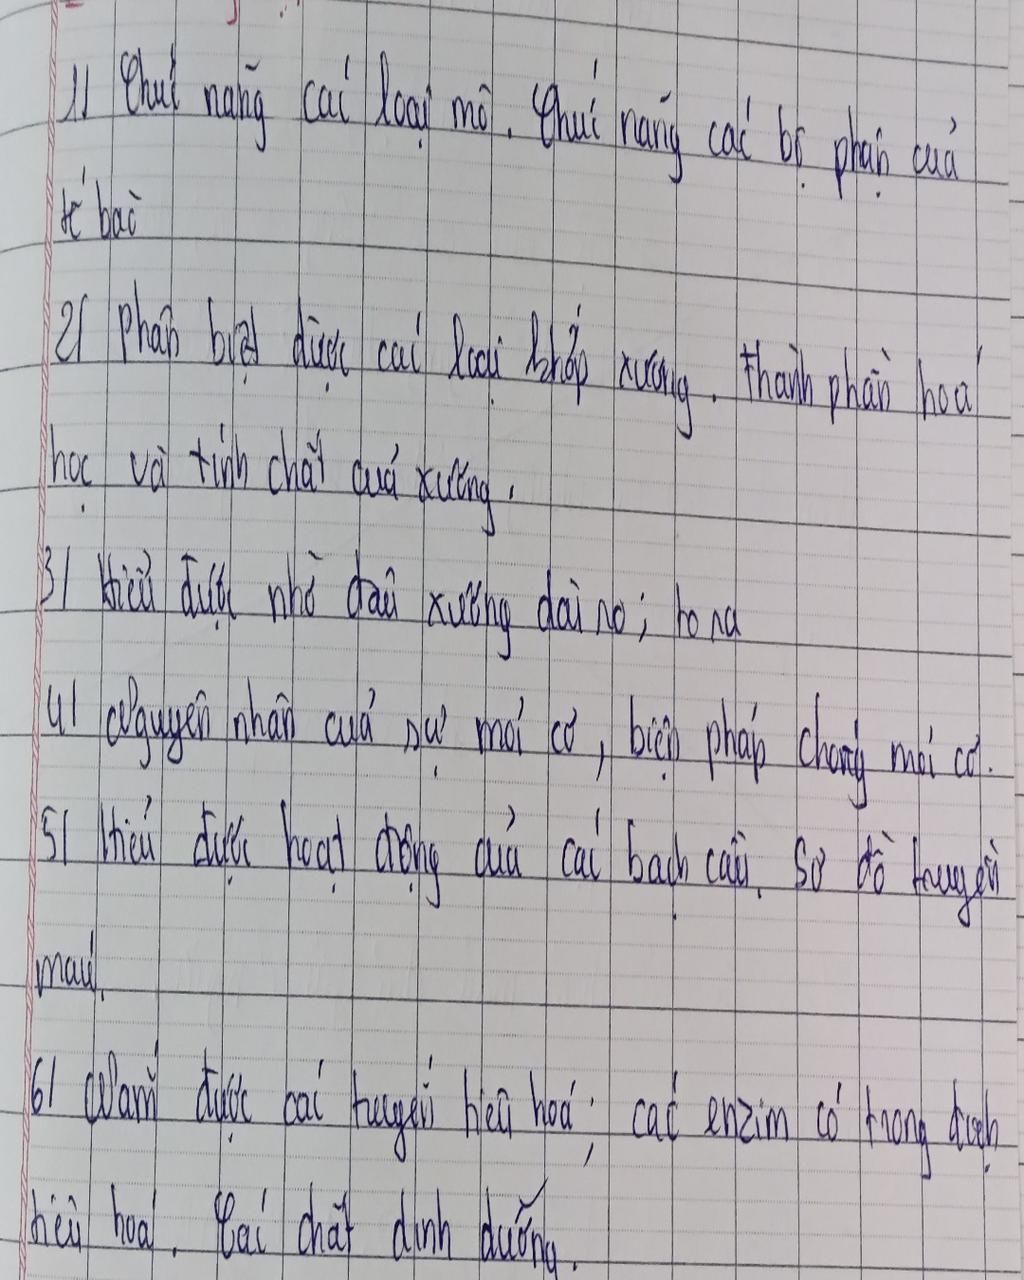 1/ Chức năng các loại mô. Chức năng các bộ phận của
tế bào
2/ Phân biệt được các loại khớp xương. Thành phần hoá
học và tính chất của xương.
3/ Hiểu được nhờ đâu xương dài ra; to ra
4/ Nguyên nhân của sự mỏi cơ, biện pháp chống mỏi cơ.
5/ Hiểu được hoạt động của các bạch cầu. Sơ đồ truyền
máu.
6/ Nắm được các tuyến tiêu hoá; các enzim có trong dịch
tiêu hoá. Các chất dinh dưỡng.